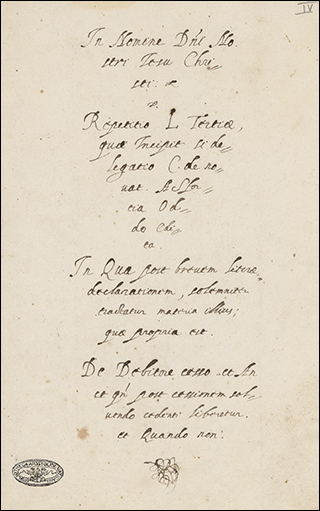 IV
In Nomine Dñi No=
stri Iesu Chri=
sti: &c
Repetitio L. Tertiæ,
quæ Incipit si de=
legatio C. de no=
vat. A Sfor=
cia Od=
do Edi=
ta.
In Qua post brevem literæ
declarationem, solemniter
tractatur materia illius;
quæ propria est.
De Debitore cesso et An
et qñ post cessionem sol=
vendo cedenti liberetur.
et Quando non